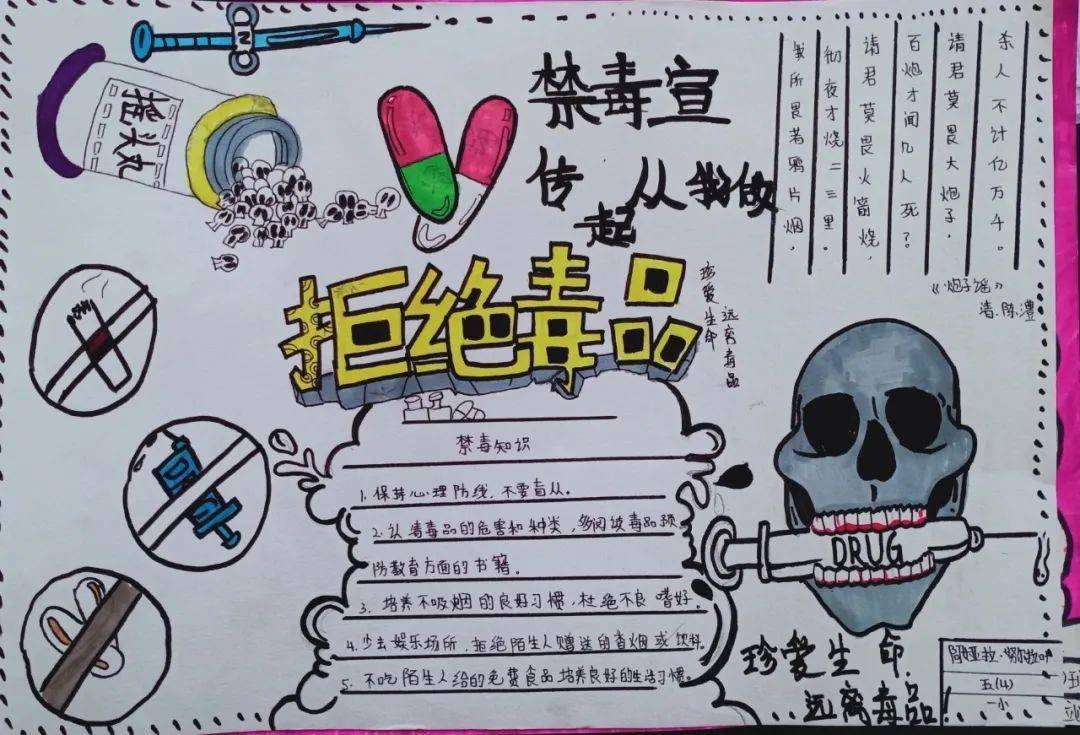 摇头丸
禁毒宣
传 从我做
起
拒绝毒品
珍爱生命
远离毒品
杀人不计亿万千。
请君莫畏大炮子,
百炮才闻几人死?
请君莫畏火箭烧,
彻夜才烧二三里。
我所畏若鸦片烟,
《炮子谣》
清.陈澧
禁毒知识
1. 保持心理防线,不要盲从。
2. 认清毒品的危害和种类,多阅读毒品预
防教育方面的书籍。
3. 培养不吸烟的良好习惯,杜绝不良嗜好。
4. 少去娱乐场所,拒绝陌生人赠送的香烟或饮料
5. 不吃陌生人给的免费食品 培养良好的生活习惯。
DRUG
珍爱生命
远离毒品!
五(4)
一小